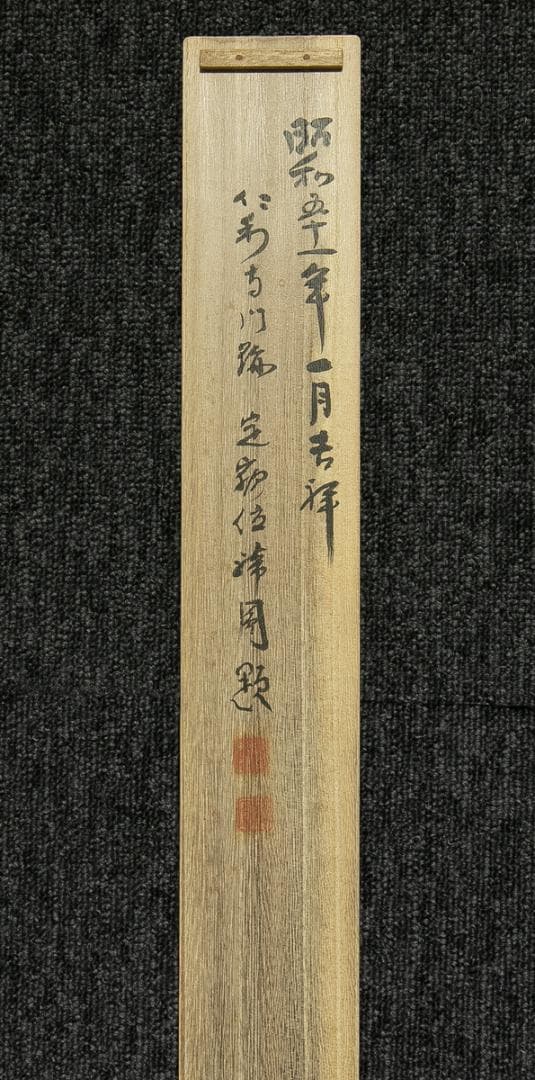 昭和五十一年一月吉祥
仁和寺門跡 定額位 周題